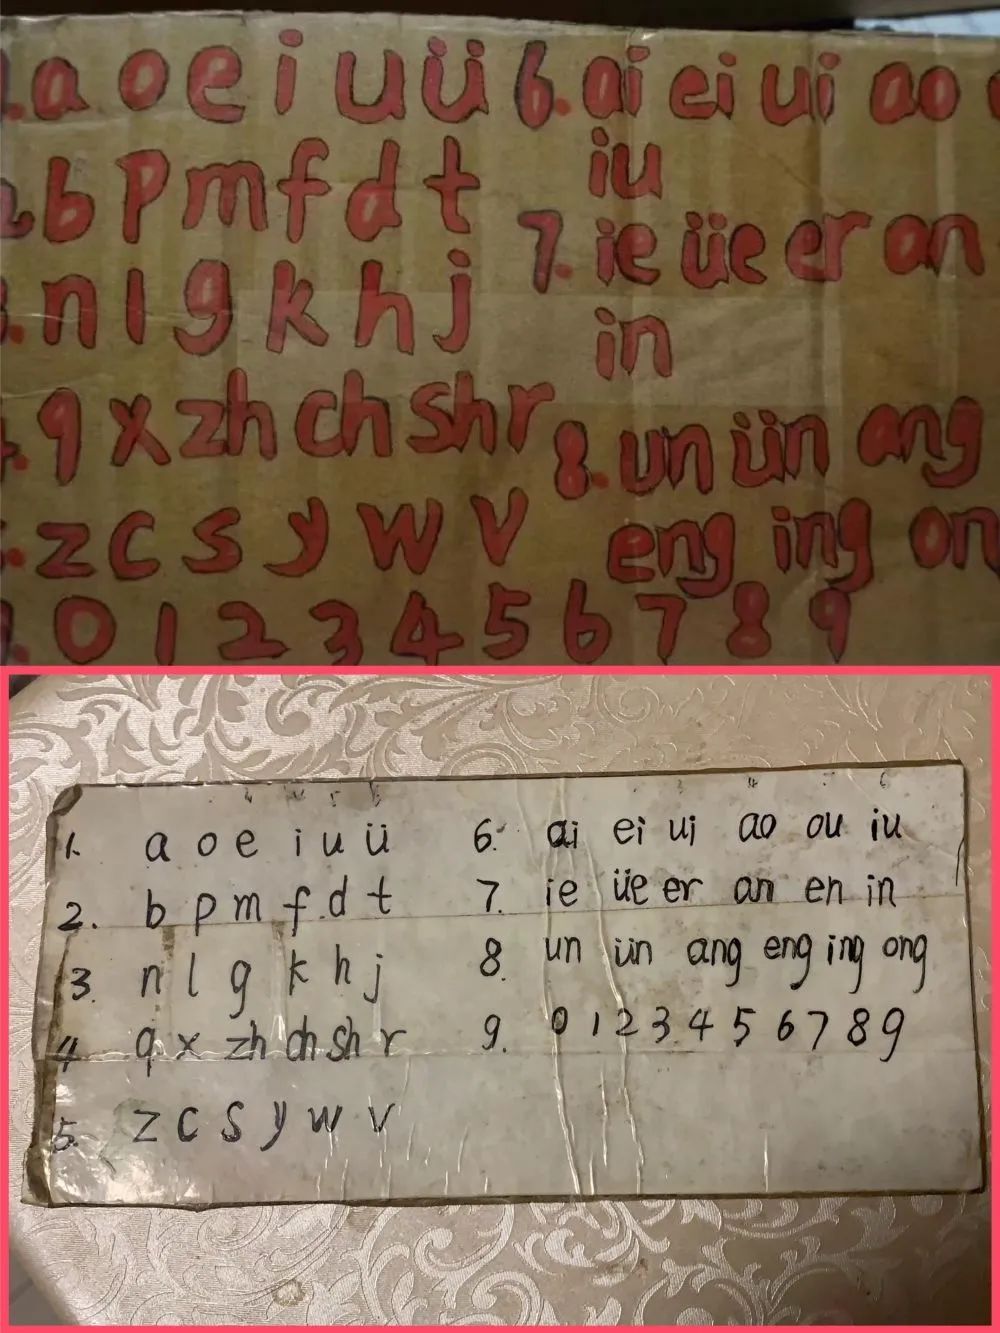 a o e i u ü 6. ai ei ui ao
iu
b p m f d t
7. ie üe er an
n l g k h j
in
q x zh ch sh r
8. un ün ang
z c s y w v
eng ing on
0 1 2 3 4 5 6 7 8 9
1. a o e i u ü 6. ai ei ui ao ou iu
2. b p m f d t 7. ie üe er an en in
3. n l g k h j 8. un ün ang eng ing ong
4 q x zh ch sh r 9. 0 1 2 3 4 5 6 7 8 9
5. z c s y w v